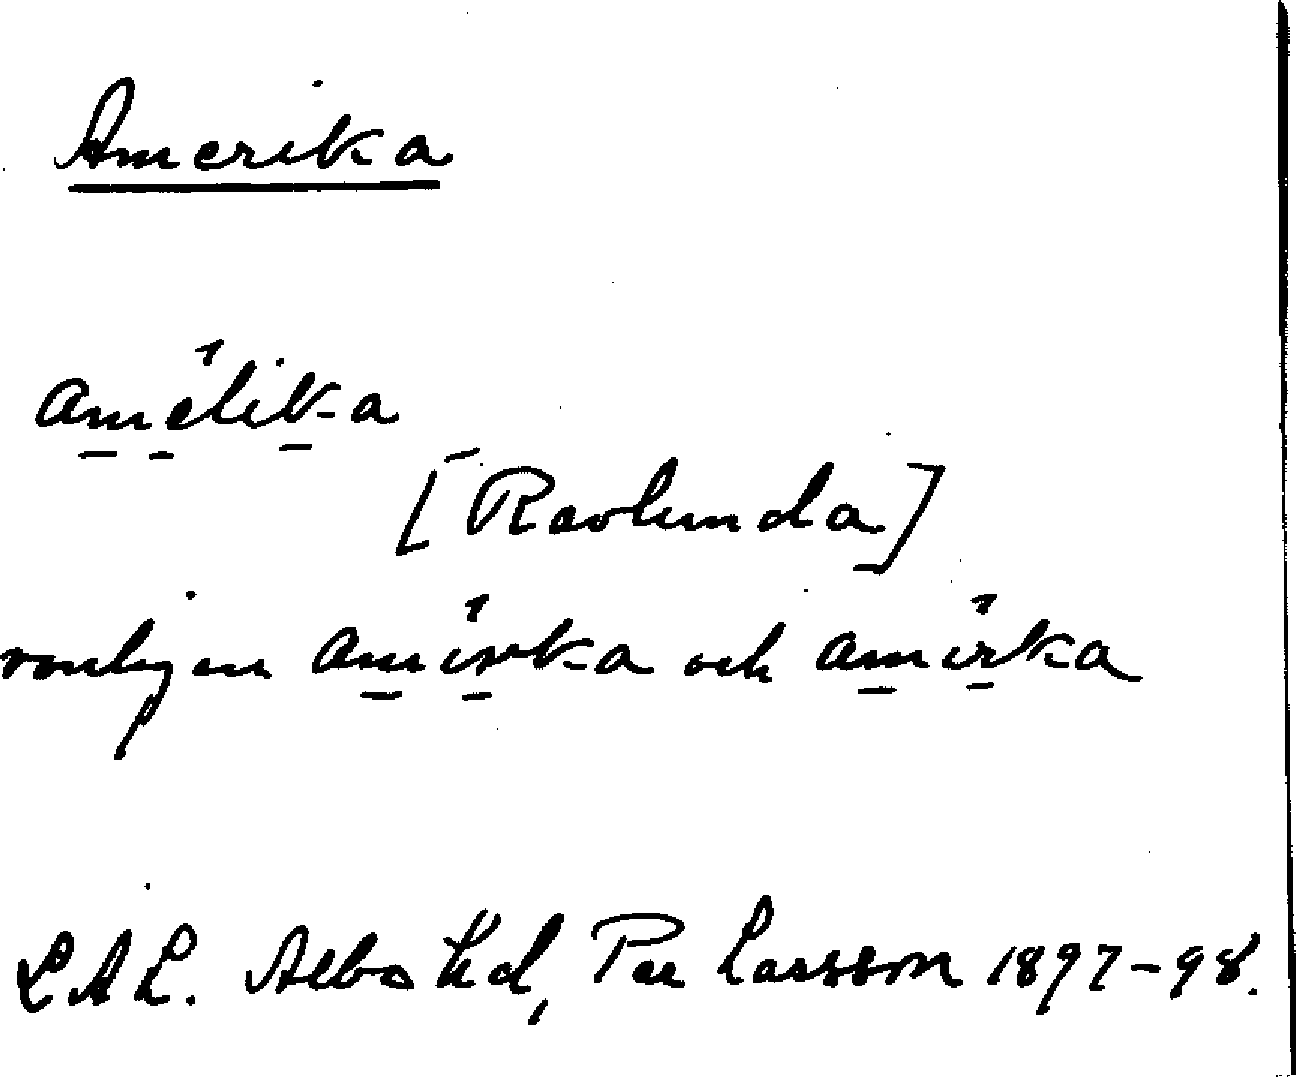 Amerika
amelika
[Ravlunda]
vanligen amirka och amirka
L.A.L. Albo hd, Per Larsson 1897-98.